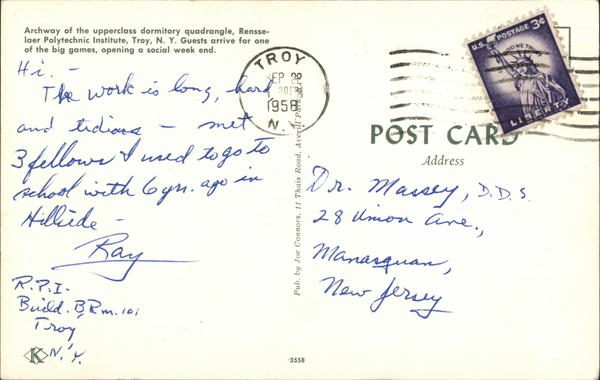 Archway of the upperclass dormitory quadrangle, Rensse-
laer Polytechnic Institute, Troy, N. Y. Guests arrive for one
of the big games, opening a social week end.
Hi. -
The work is long, hard
and tedious - met
3 fellows I used to go to
school with 6 yr. ago in
Hillside -
Ray
R.P.I.
Build. B, Rm. 101
Troy
N.Y.
K
TROY
SEP 28
1958
N.Y.
U.S. POSTAGE 3¢
IN GOD WE TRUST
LIBERTY
POST CARD
Address
Dr. Massey, D.D.S.
28 Union Ave.,
Manasquan,
New Jersey
Pub. by Joe Connors, 11 Thais Road, Averill Park
3558